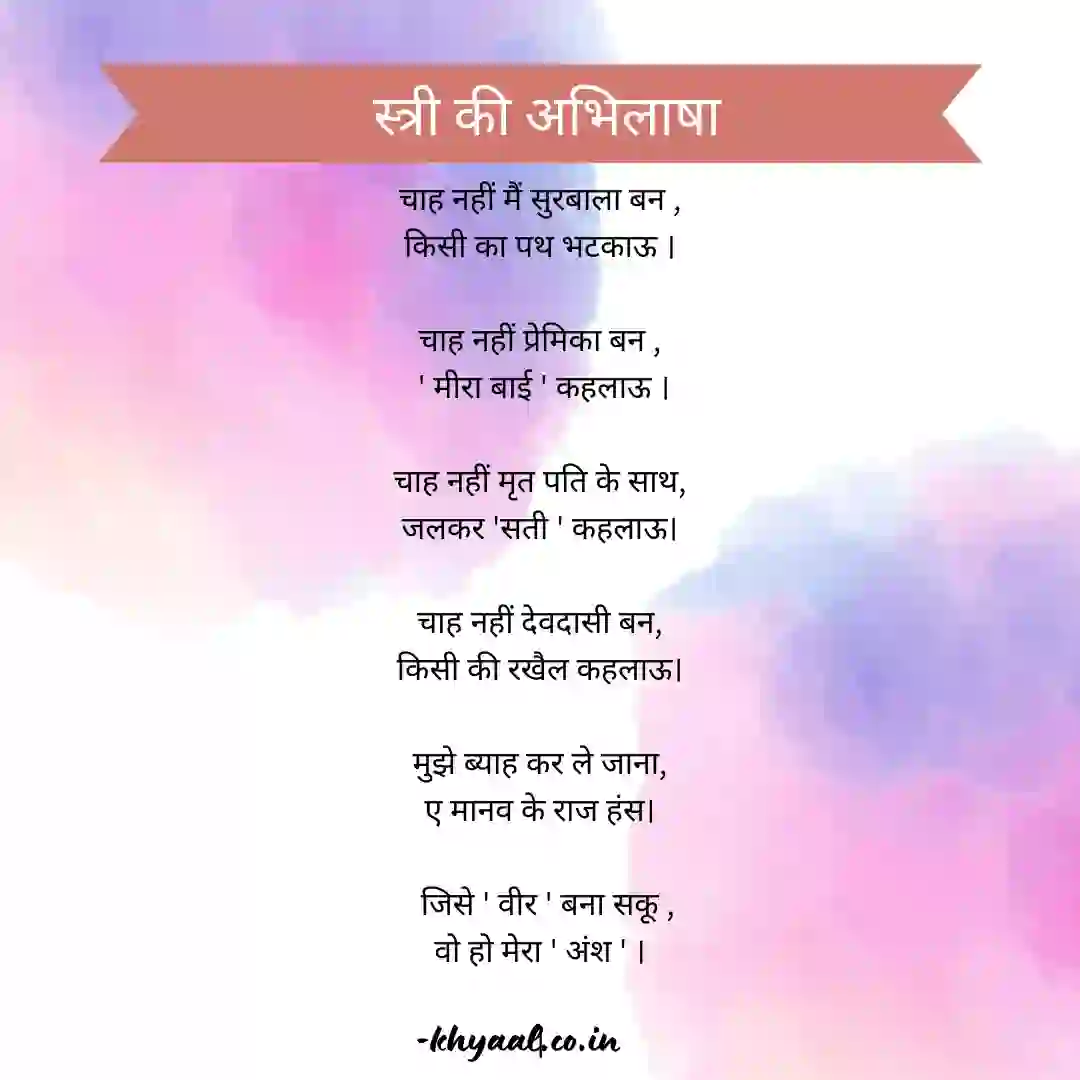 स्त्री की अभिलाषा
चाह नहीं मैं सुरबाला बन ,
किसी का पथ भटकाऊ ।
चाह नहीं प्रेमिका बन ,
' मीरा बाई ' कहलाऊ ।
चाह नहीं मृत पति के साथ,
जलकर 'सती ' कहलाऊ।
चाह नहीं देवदासी बन,
किसी की रखैल कहलाऊ।
मुझे ब्याह कर ले जाना,
ए मानव के राज हंस।
जिसे ' वीर ' बना सकू ,
वो हो मेरा ' अंश ' ।
-khyaal.co.in